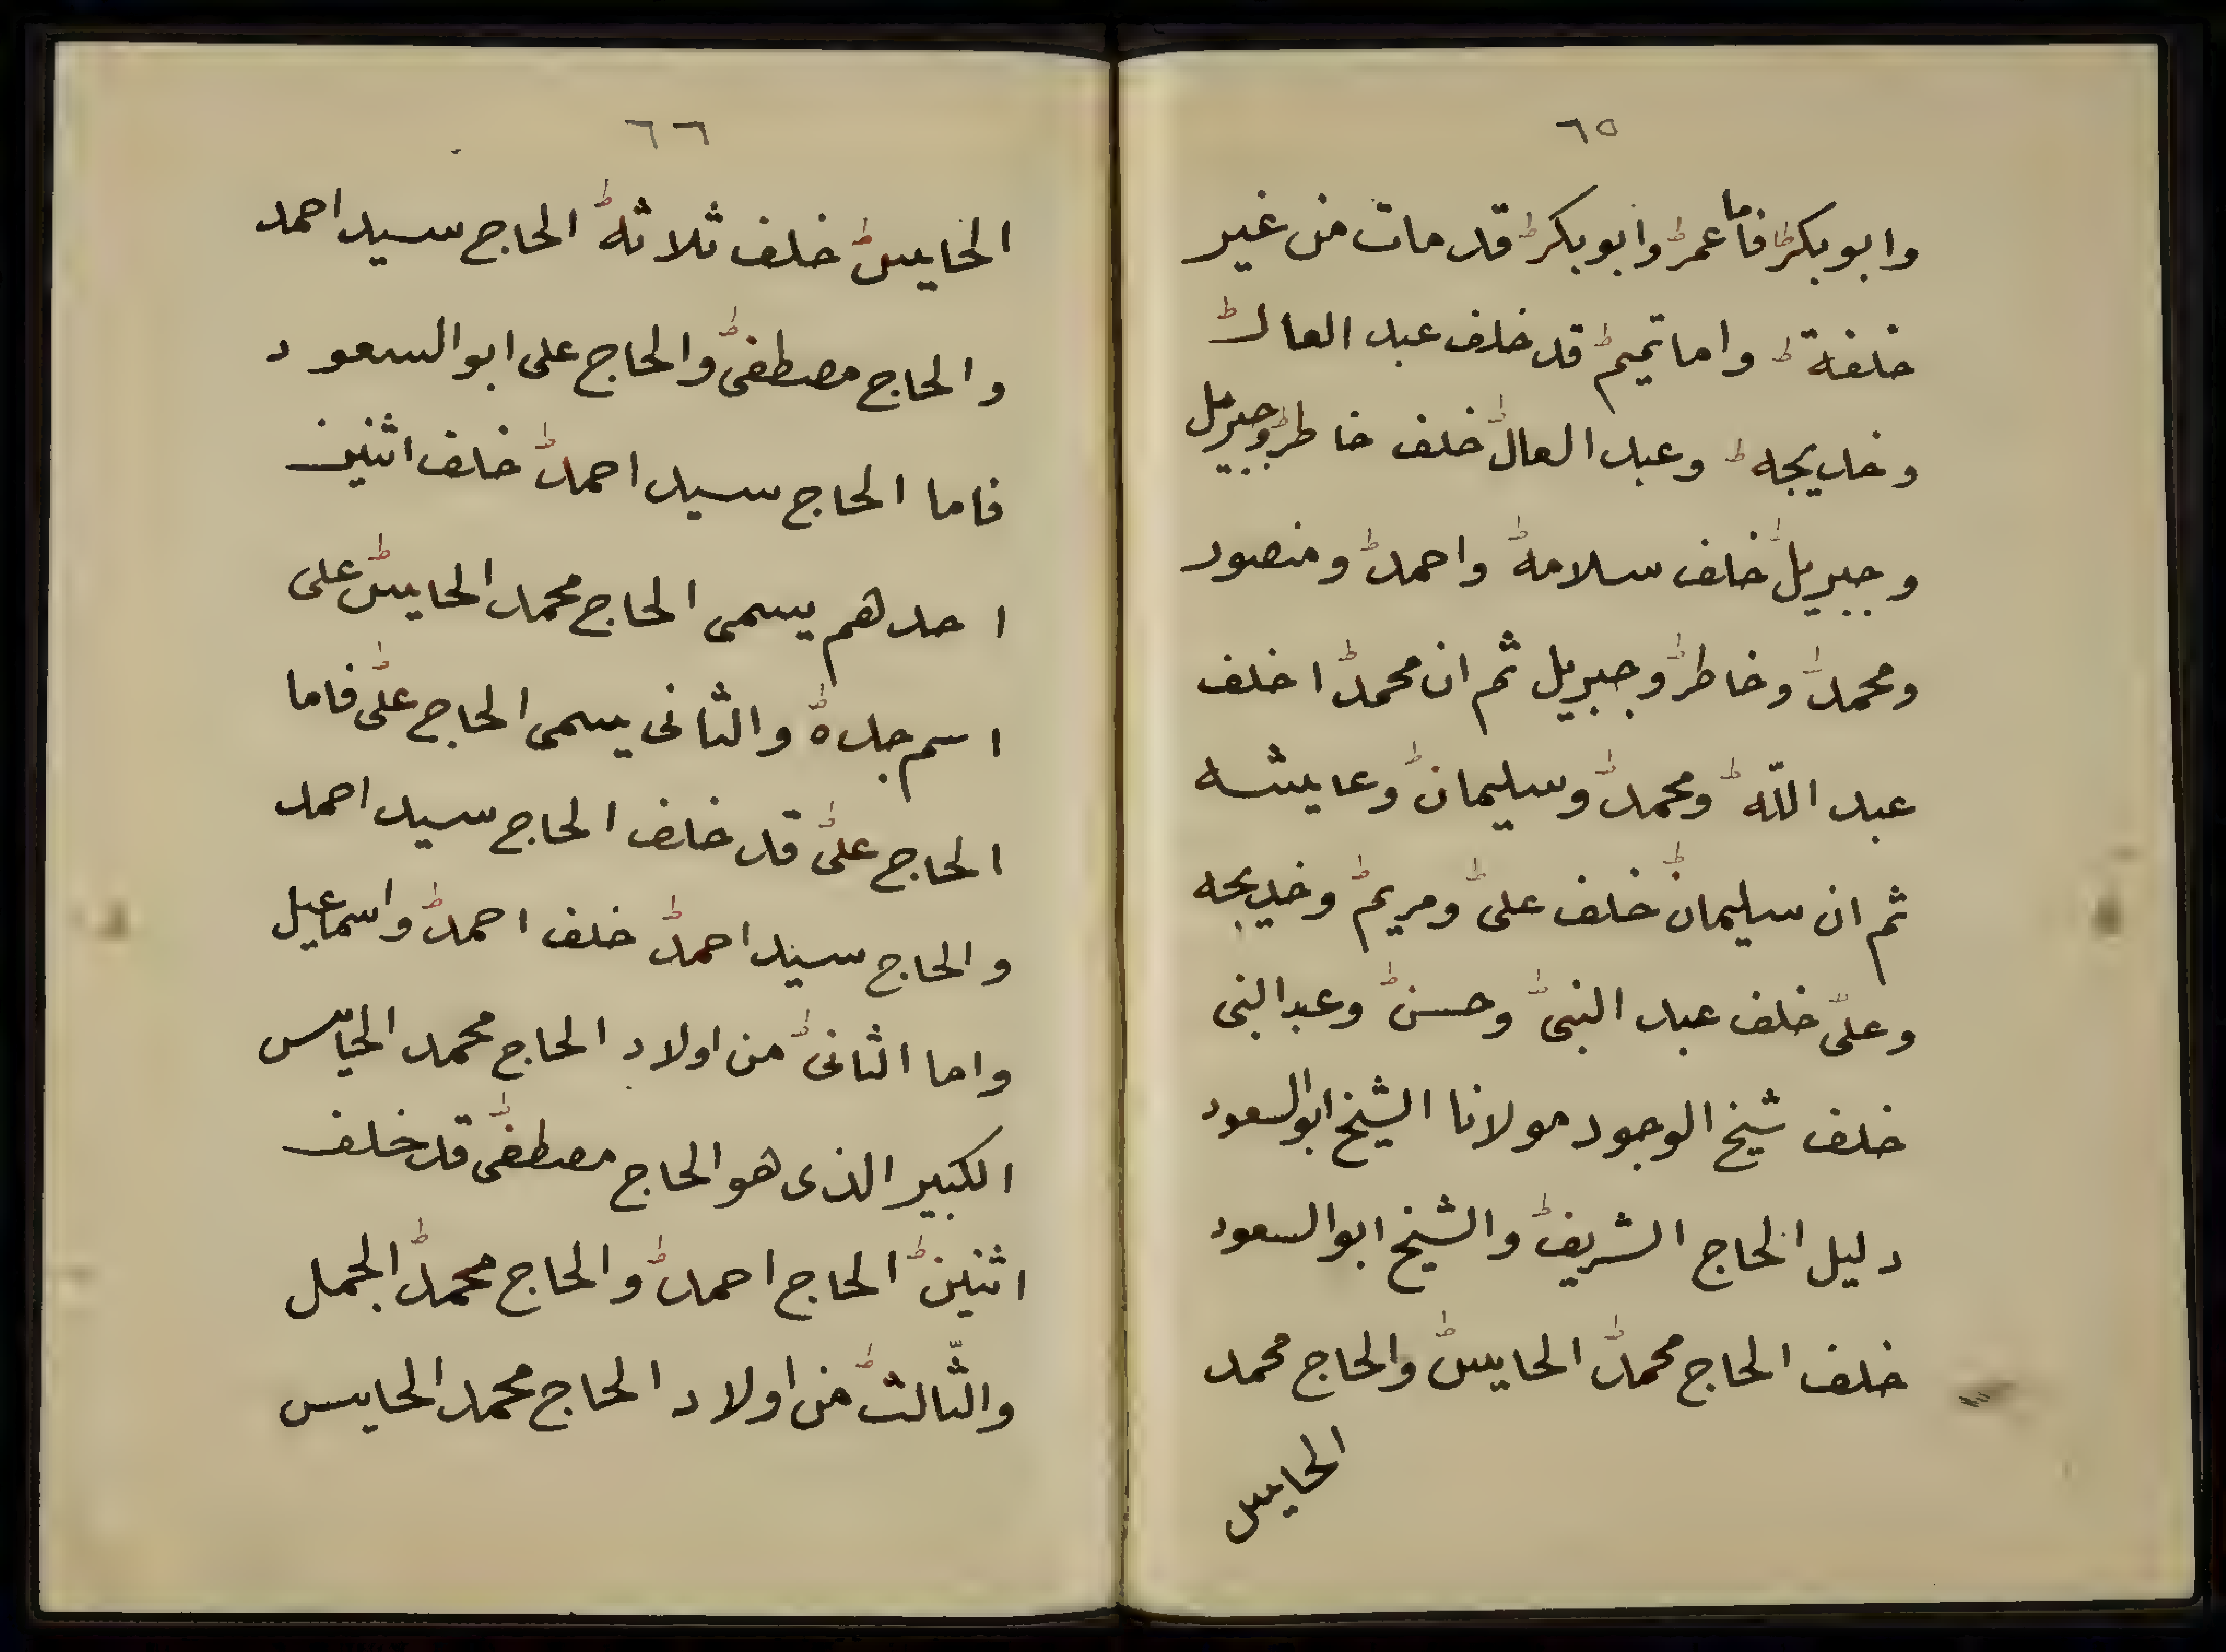 ٦٥
وابوبكر فاما عمر وابوبكر قد مات من غير
خلفة واما تميم قد خلف عبد العال
وخديجه وعبد العال خلف خاطر وجبريل
وجبريل خلف سلامه واحمد ومنصور
ومحمد وخاطر وجبريل ثم ان محمدا خلف
عبد اللّه ومحمد وسليمان وعايشه
ثم ان سليمان خلف على ومريم وخديجه
وعلى خلف عبد النبى وحسن وعبد النبى
خلف شيخ الوجود مولانا الشيخ ابوالسعود
دليل الحاج الشريف والشيخ ابوالسعود
خلف الحاج محمد الحايس والحاج محمد
الحايس
٦٦
الحايس خلف ثلاثه الحاج سيد احمد
والحاج مصطفى والحاج على ابوالسعود
فاما الحاج سيد احمد خلف اثنين
احدهم يسمى الحاج محمد الحايس على
اسم جده والثانى يسمى الحاج على فاما
الحاج على قد خلف الحاج سيد احمد
والحاج سيد احمد خلف احمد واسماعيل
واما الثانى من اولاد الحاج محمد الحايس
الكبير الذى هو الحاج مصطفى قد خلف
اثنين الحاج احمد والحاج محمد الجمل
والثّالث من اولاد الحاج محمد الحايس